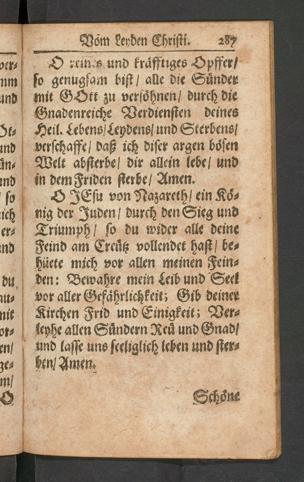 Vom Leyden Christi. 287
O reines und kräfftiges Opffer/
so genugsam bist/ alle die Sünder
mit GOtt zu versöhnen/ durch die
Gnadenreiche Verdiensten deines
Heil. Lebens/ Leydens/ und Sterbens/
verschaffe/ daß ich diser argen bösen
Welt absterbe/ dir allein lebe/ und
in dem Friden sterbe/ Amen.
O JEsu von Nazareth/ ein Kö-
nig der Juden/ durch den Sieg und
Triumph/ so du wider alle deine
Feind am Creütz vollendet hast/ be-
hüete mich vor allen meinen Fein-
den: Bewahre mein Leib und Seel
vor aller Gefährlichkeit; Gib deiner
Kirchen Frid und Einigkeit; Ver-
leyhe allen Sündern Reü und Gnad/
und lasse uns seeliglich leben und ster-
ben/ Amen.
Schöne